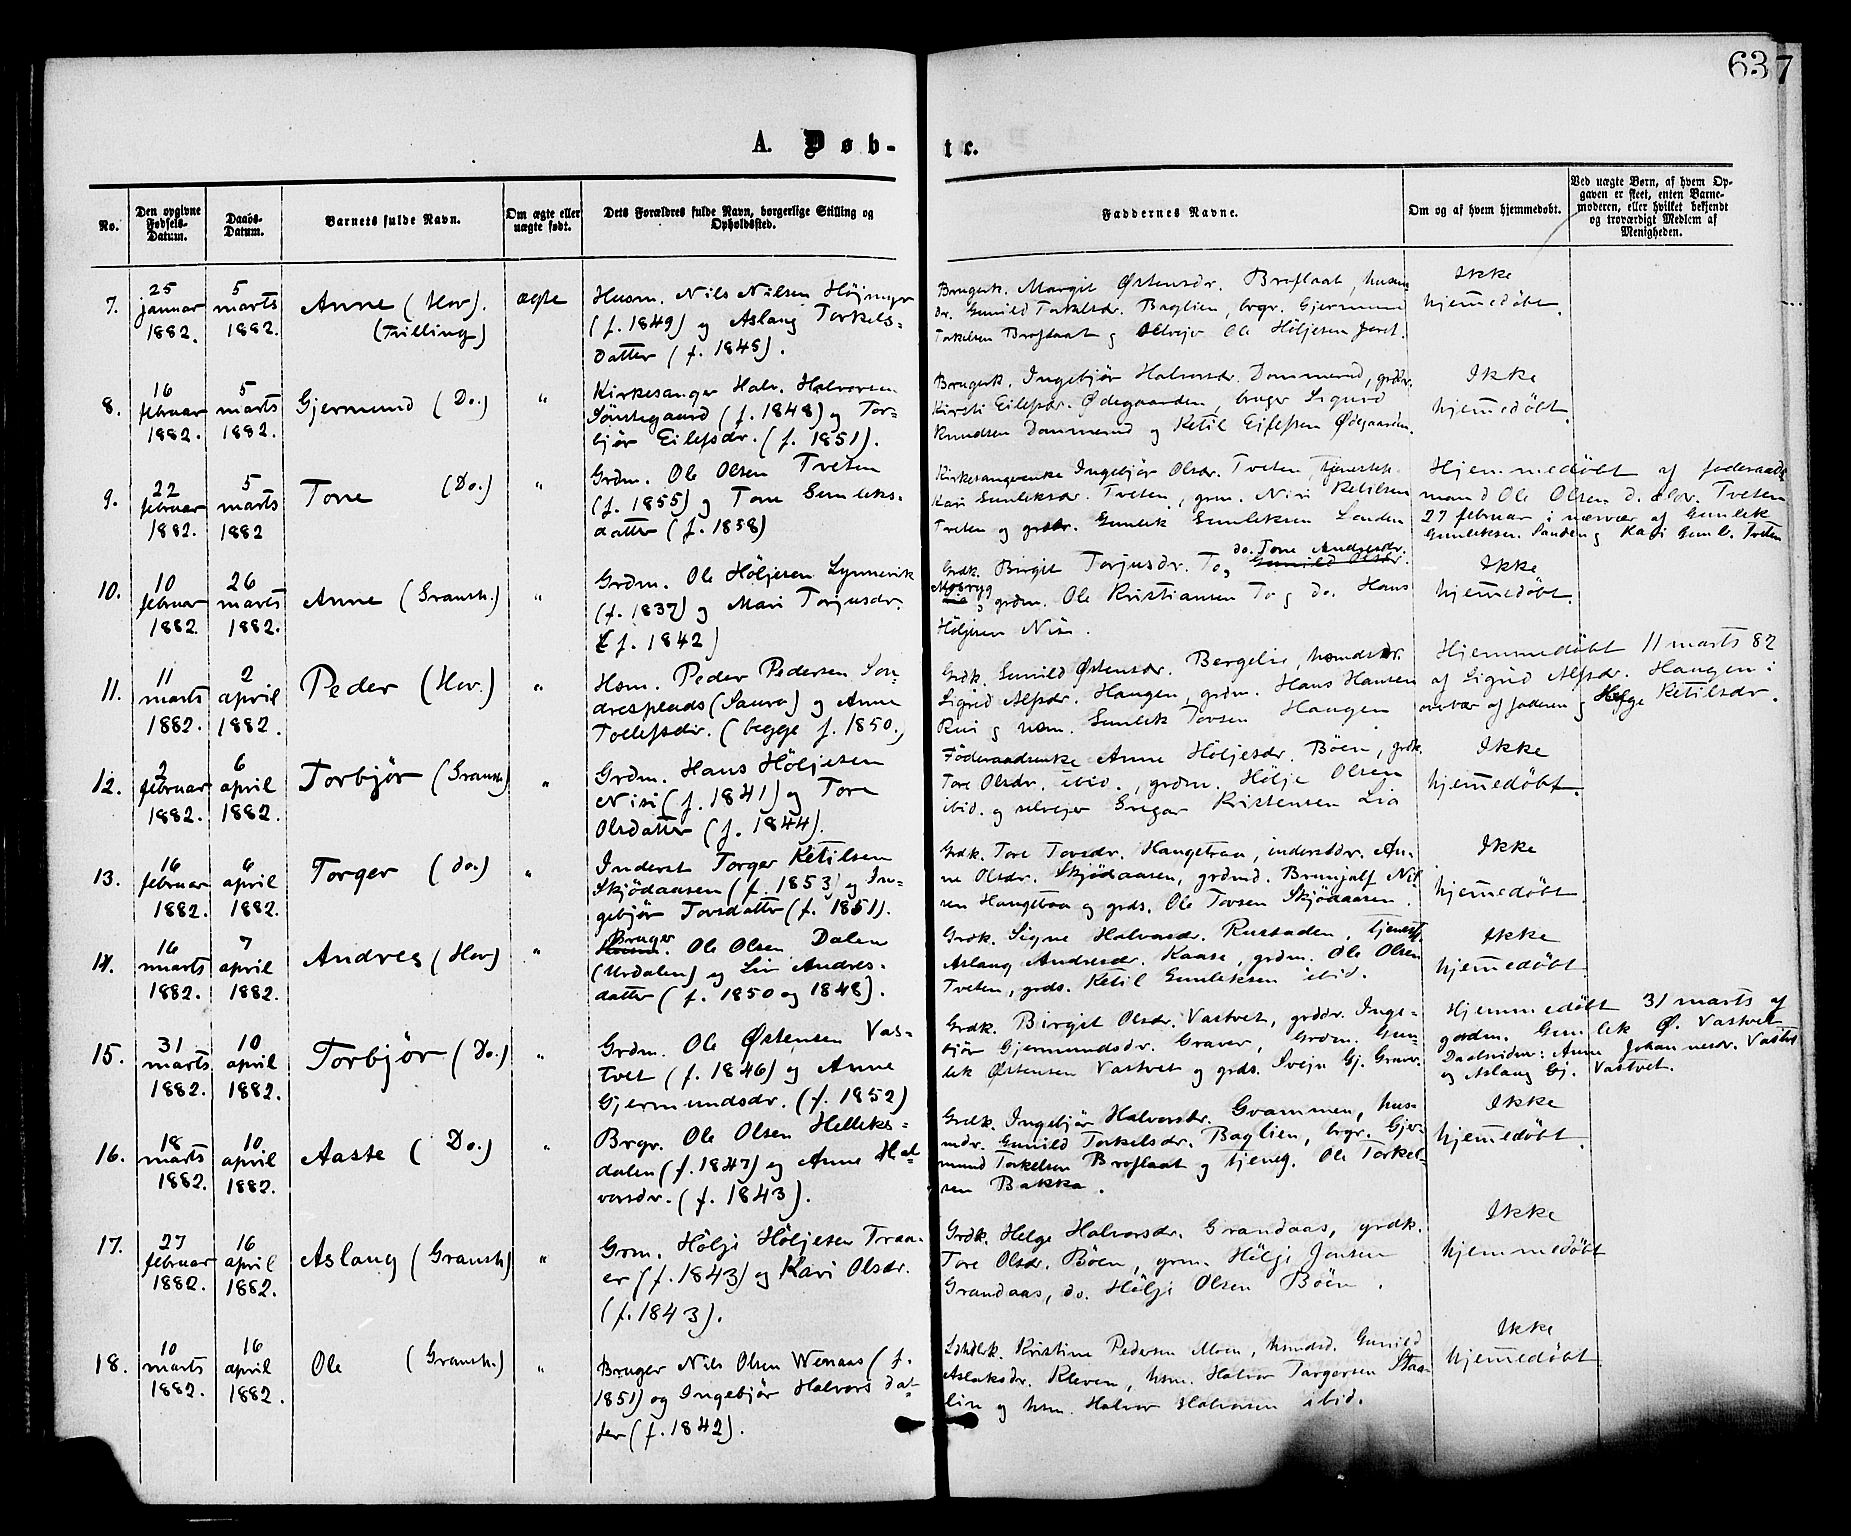 63
7
A. Døb-
te.
No.
Den opgivne Fødsels-Datum.
Daabs-Datum.
Barnets fulde Navn.
Om ægte eller uægte født.
Dets Forældres fulde Navn, borgerlige Stilling og Opholdssted.
Faddernes Navne.
Om og af hvem hjemmedøbt.
Ved uægte Børn, af hvem Op-
gaven er skeet, enten Barne-
moderen, eller hvilket bekjendt
og troværdigt Medlem af
Menigheden.
7.
25 januar 1882.
5 marts 1882.
Anne (Hov).
(Trilling)
ægte
Husm. Nils Nilsen Höjmyr
(f. 1849) og Aslaug Torkels-
datter (f. 1845).
Brugerk. Margit Østensdr. Broflaat, husm
dr. Gunild Torkelsdr. Baglien, brgr. Gjermund
Torkelsen Broflaat og selvejr Ole Höljesen
Ikke
hjemedøbt.
8.
16 februar 1882.
5 marts 1882.
Gjermund (Do.)
"
Kirkesanger Halv. Halvorsen
Sönstegaard (f. 1848) og Tor-
björ Eilefsdr. (f. 1851).
Brugerk. Ingebjör Halvorsdr. Dommerud, grddr.
Kirsti Eilefsdr. Ødegaarden, bruger Sigurd
Knudsen Dommerud og Ketil Eilefsen Ødegaarden.
Ikke
hjemedøbt.
9.
22 februar 1882.
5 marts 1882
Tone (Do.)
"
Grdm. Ole Olsen Tveten
(f. 1855) og Tone Gunleks-
datter (f. 1858)
Kirkesangerenke Ingebjör Olsdr. Tveten, tjenestep.
Kari Gunleksdr. Tveten, grm. Nisi Ketilsen
Tveten og grdbr. Gunlek Gunleksen Landen
Hjemmedøbt af føderaads
mand Ole Olsen d. eldr. Tveten
27 februar i nærvær af Gunlek
Gunleksen og Kari Gunl. Tveten
10.
10 februar 1882.
26 marts 1882.
Anne (Gransh.)
"
Grdm. Ole Höljesen Lynnevik
(f. 1837) og Mari Torjusdr.
(f. 1842)
do. Tone Andresdr.
Grdk. Birgit Torjusdr. To, Gunild Olsdr.
grdm. Ole Kristiansen To og do. Hans
Höljesen Nisi.
Ikke
hjemedøbt.
11.
11 marts 1882.
2 april 1882.
Peder (Hov.)
"
Hsm. Peder Pedersen Son-
dresplads (Sauro) og Anne
Tollefsdr. (begge f. 1850.)
Grdk. Gunild Østensdr. Bergelie, hsmdsdr.
Sigrid Alfsdr. Haugen, grdm. Hans Hansen
Rui og hsm. Gunlek Tovsen Haugen
Hjemmedøbt 11 marts 82
af Sigrid Alfsdr. Haugen i
overvær af faderen og Helge Ketilsdr.
12.
2 februar 1882.
6 april 1882.
Torbjör (Gransh)
"
Grdm. Hans Höljesen
Nisi (f. 1841) og Tore
Olsdatter (f. 1844).
Föderaadsenke Anne Höljesdr. Böen, grdk.
Tore Olsdr. ibid., grdm. Hölje Olsen
ibid. og selvejer Gregar Kristensen Lia
Ikke
hjemedøbt.
13.
16 februar 1882.
6 april 1882.
Torger (do.)
"
Inderst Torger Ketilsen
Skjödaasen (f. 1853) og In-
gebjör Tovsdatter (f. 1851).
Grdk. Tore Tovsdr. Haugetraa, inderstdr. An-
ne Olsdr. Skjödaasen, grdmd. Brynjulf Nil-
sen Haugetraa og grds. Ole Tovsen Skjödaasen.
Ikke
hjemedøbt.
14.
16 marts 1882.
7 april 1882.
Andres (Hov)
"
Bruger Ole Olsen Dalen
(Urdalen) og Liv Andres-
datter (f. 1850 og 1848).
Grdk. Signe Halvorsdr. Rustaden, tjenestp.
Aslaug Andresdr. Kaase, grdm. Ole Olsen
Tveten, grds. Ketil Gunleksen ibid.
Ikke
hjemedøbt.
15.
31 marts 1882.
10 april 1882.
Torbjör (Do.)
"
Grdm. Ole Østensen Vas-
tvet (f. 1846) og Anne
Gjermundsdr. (f. 1852)
Grdk. Birgit Olsdr. Vastvet, grddr. Inge-
björ Gjermundsdr. Graver, Grdm. Gun-
lek Østensen Vastvet og grds. Svejn Gj. Graver.
Hjemmedøbt 31 marts af
gardm. Gunlek Ø. Vastvet
Daabsvidner: Anne Johannesdr. Vastvet
og Aslaug Gj. Vastvet.
16.
18 marts 1882.
10 april 1882.
Aaste (Do.)
"
Brgr. Ole Olsen Helleks-
dalen (f. 1847) og Anne Hal-
vorsdr. (f. 1843).
Grdk. Ingebjör Halvorsdr. Grammen, hus-
mdr. Gunild Torkelsdr. Baglien, brgr. Gjer-
mund Torkelsen Broflaat og tjeneg. Ole Torkel-
sen Bakka.
Ikke
hjemedøbt.
17.
27 februar 1882.
16 april 1882.
Aslaug (Gransh)
"
Grm. Hölje Höljesen Traa-
er (f. 1843) og Kari Olsdr.
(f. 1843).
Grdk. Helge Halvorsdr. Grandaas, grdk.
Tore Olsdr. Böen, grm. Hölje Jonsen
Grandaas, do. Hölje Olsen Böen.
Ikke
hjemmedöbt
18.
10 marts 1882.
16 april 1882.
Ole (Gransh.)
"
Bruger Nils Olsen Wenaas (f.
1851) og Ingebjör Halvorsdat-
ter (f. 1842).
Kristine Pedersen Moen, hsmdsd. Gunild
Aslaksdr. Kleven, hsm. Halvor Targersen Staa-
lin og hsm. Halvor Halvorsen ibid.
Ikke
hjemedøbt